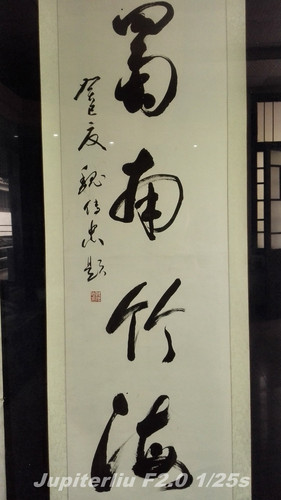 蜀南竹海
癸巳夏 魏传忠题
Jupiterliu F2.0 1/25s